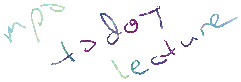 mps
to dot
lecture